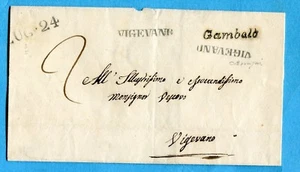 UG-24
VIGEVANO
Gambalò
VIGEVANO
2
All' Illustrissimo e Reverendissimo
Monsignor Vescovo
Vigevano